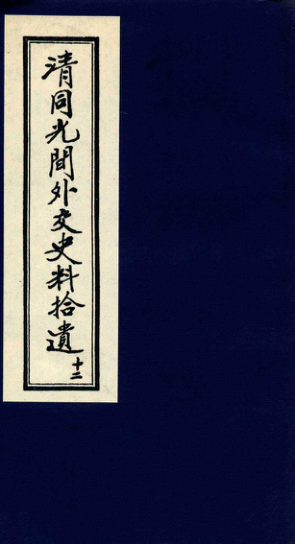 清同光間外交史料拾遺
十二